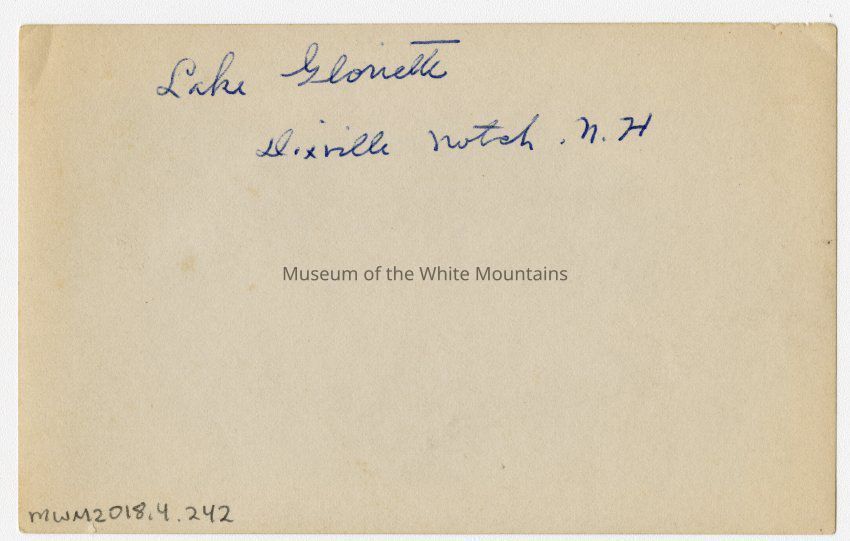 Lake Gloriette
Dixville Notch. N. H
Museum of the White Mountains
MWM2018.4.242